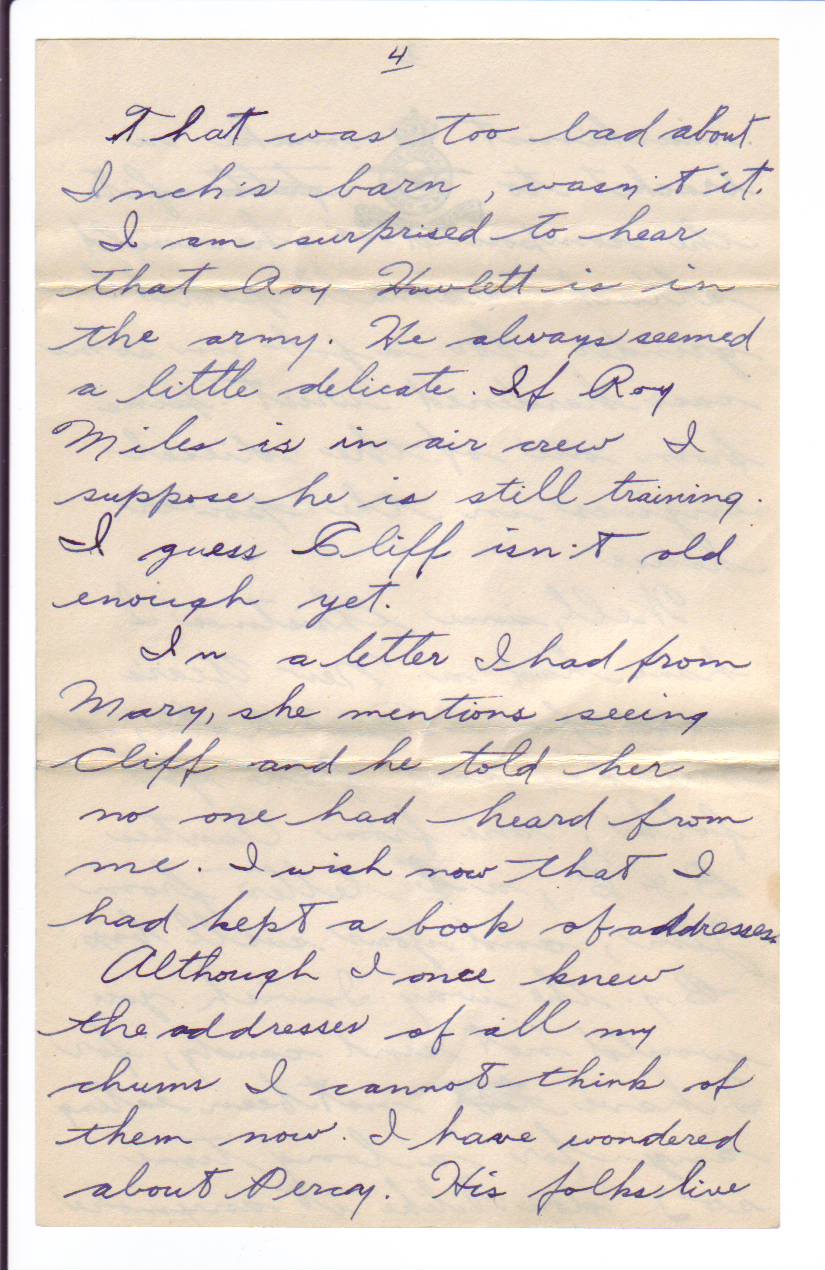 4
That was too bad about
Inch's barn, wasn't it.
I am surprised to hear
that Roy Howlett is in
the army. He always seemed
a little delicate. If Roy
Miles is in air crew I
suppose he is still training.
I guess Cliff isn't old
enough yet.
In a letter I had from
Mary, she mentions seeing
Cliff and he told her
no one had heard from
me. I wish now that I
had kept a book of addresses.
Although I once knew
the addresses of all my
chums I cannot think of
them now. I have wondered
about Percy. His folks live